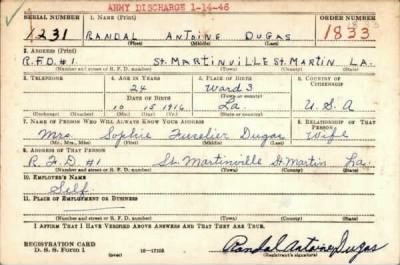 ARMY DISCHARGE 1-14-46
SERIAL NUMBER 1. NAME (Print) ORDER NUMBER
1231 RANDAL ANTOINE DUGAS 1833
(First) (Middle) (Last)
2. ADDRESS (Print)
R.F.D. #1 ST. MARTINVILLE ST. MARTIN LA.
(Number and street or R. F. D. number) (Town) (County) (State)
3. TELEPHONE 4. AGE IN YEARS 5. PLACE OF BIRTH 6. COUNTRY OF CITIZENSHIP
24 Ward 3
DATE OF BIRTH (Town or county)
10 15 1916 La. U.S.A
(Exchange) (Number) (Mo.) (Day) (Yr.) (State or country)
7. NAME OF PERSON WHO WILL ALWAYS KNOW YOUR ADDRESS 8. RELATIONSHIP OF THAT PERSON
Mrs. Sophie Fuselier Dugas Wife
(Mr., Mrs., Miss) (First) (Middle) (Last)
9. ADDRESS OF THAT PERSON
R.F.D #1 St. Martinville St. Martin La.
(Number and street or R. F. D. number) (Town) (County) (State)
10. EMPLOYER'S NAME
Self
11. PLACE OF EMPLOYMENT OR BUSINESS
(Number and street or R. F. D. number) (Town) (County) (State)
I AFFIRM THAT I HAVE VERIFIED ABOVE ANSWERS AND THAT THEY ARE TRUE.
REGISTRATION CARD
D. S. S. Form 1 (over) Randal Antoine Dugas
(Registrant's signature)